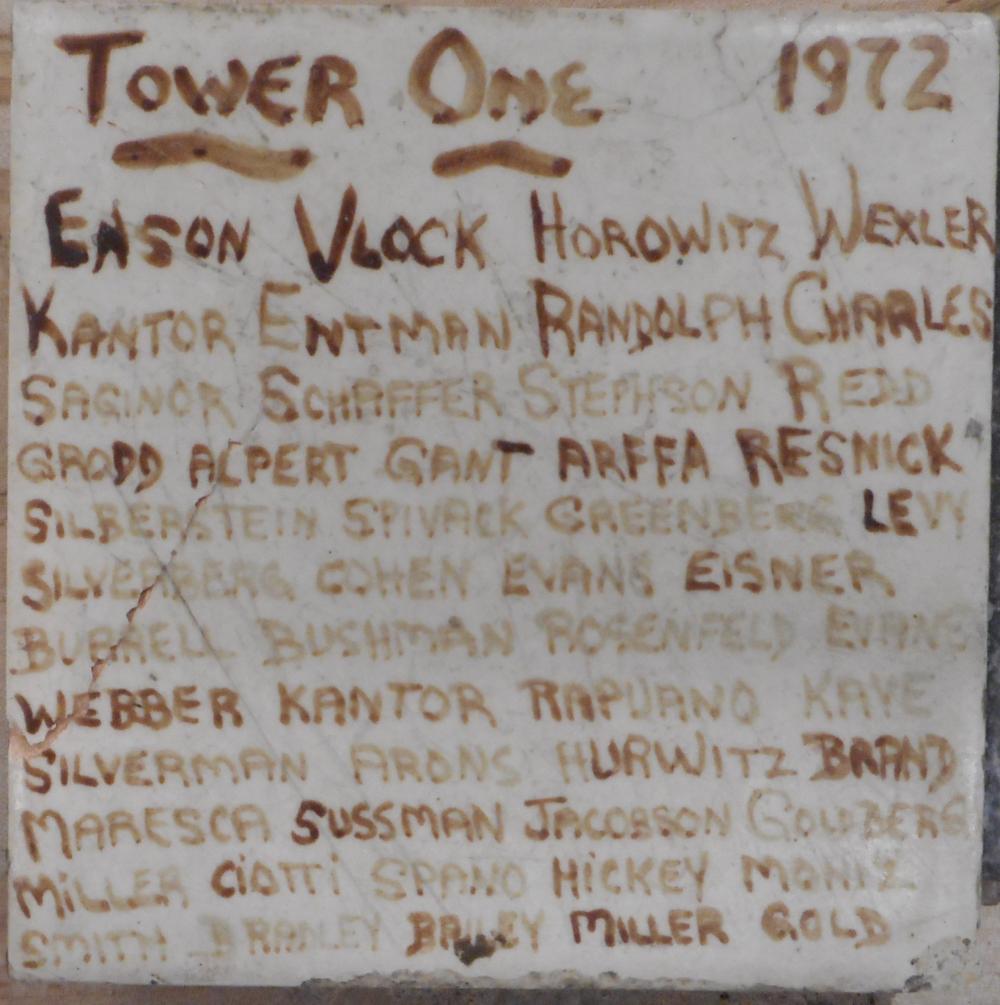 TOWER ONE 1972
EASON VLOCK HOROWITZ WEXLER
KANTOR ENTMAN RANDOLPH CHARLES
SAGINOR SCHAFFER STEPHSON REDD
GRODD ALPERT GANT ARFFA RESNICK
SILBERSTEIN SPIVACK GREENBERG LEVY
SILVERBERG COHEN EVANS EISNER
BURRELL BUSHMAN ROSENFELD EVANS
WEBBER KANTOR RAPUANO KAYE
SILVERMAN ARONS HURWITZ BRAND
MARESCA SUSSMAN JACOBSON GOLDBERG
MILLER CIOTTI SPANO HICKEY MONIZ
SMITH BRADLEY BAILEY MILLER GOLD